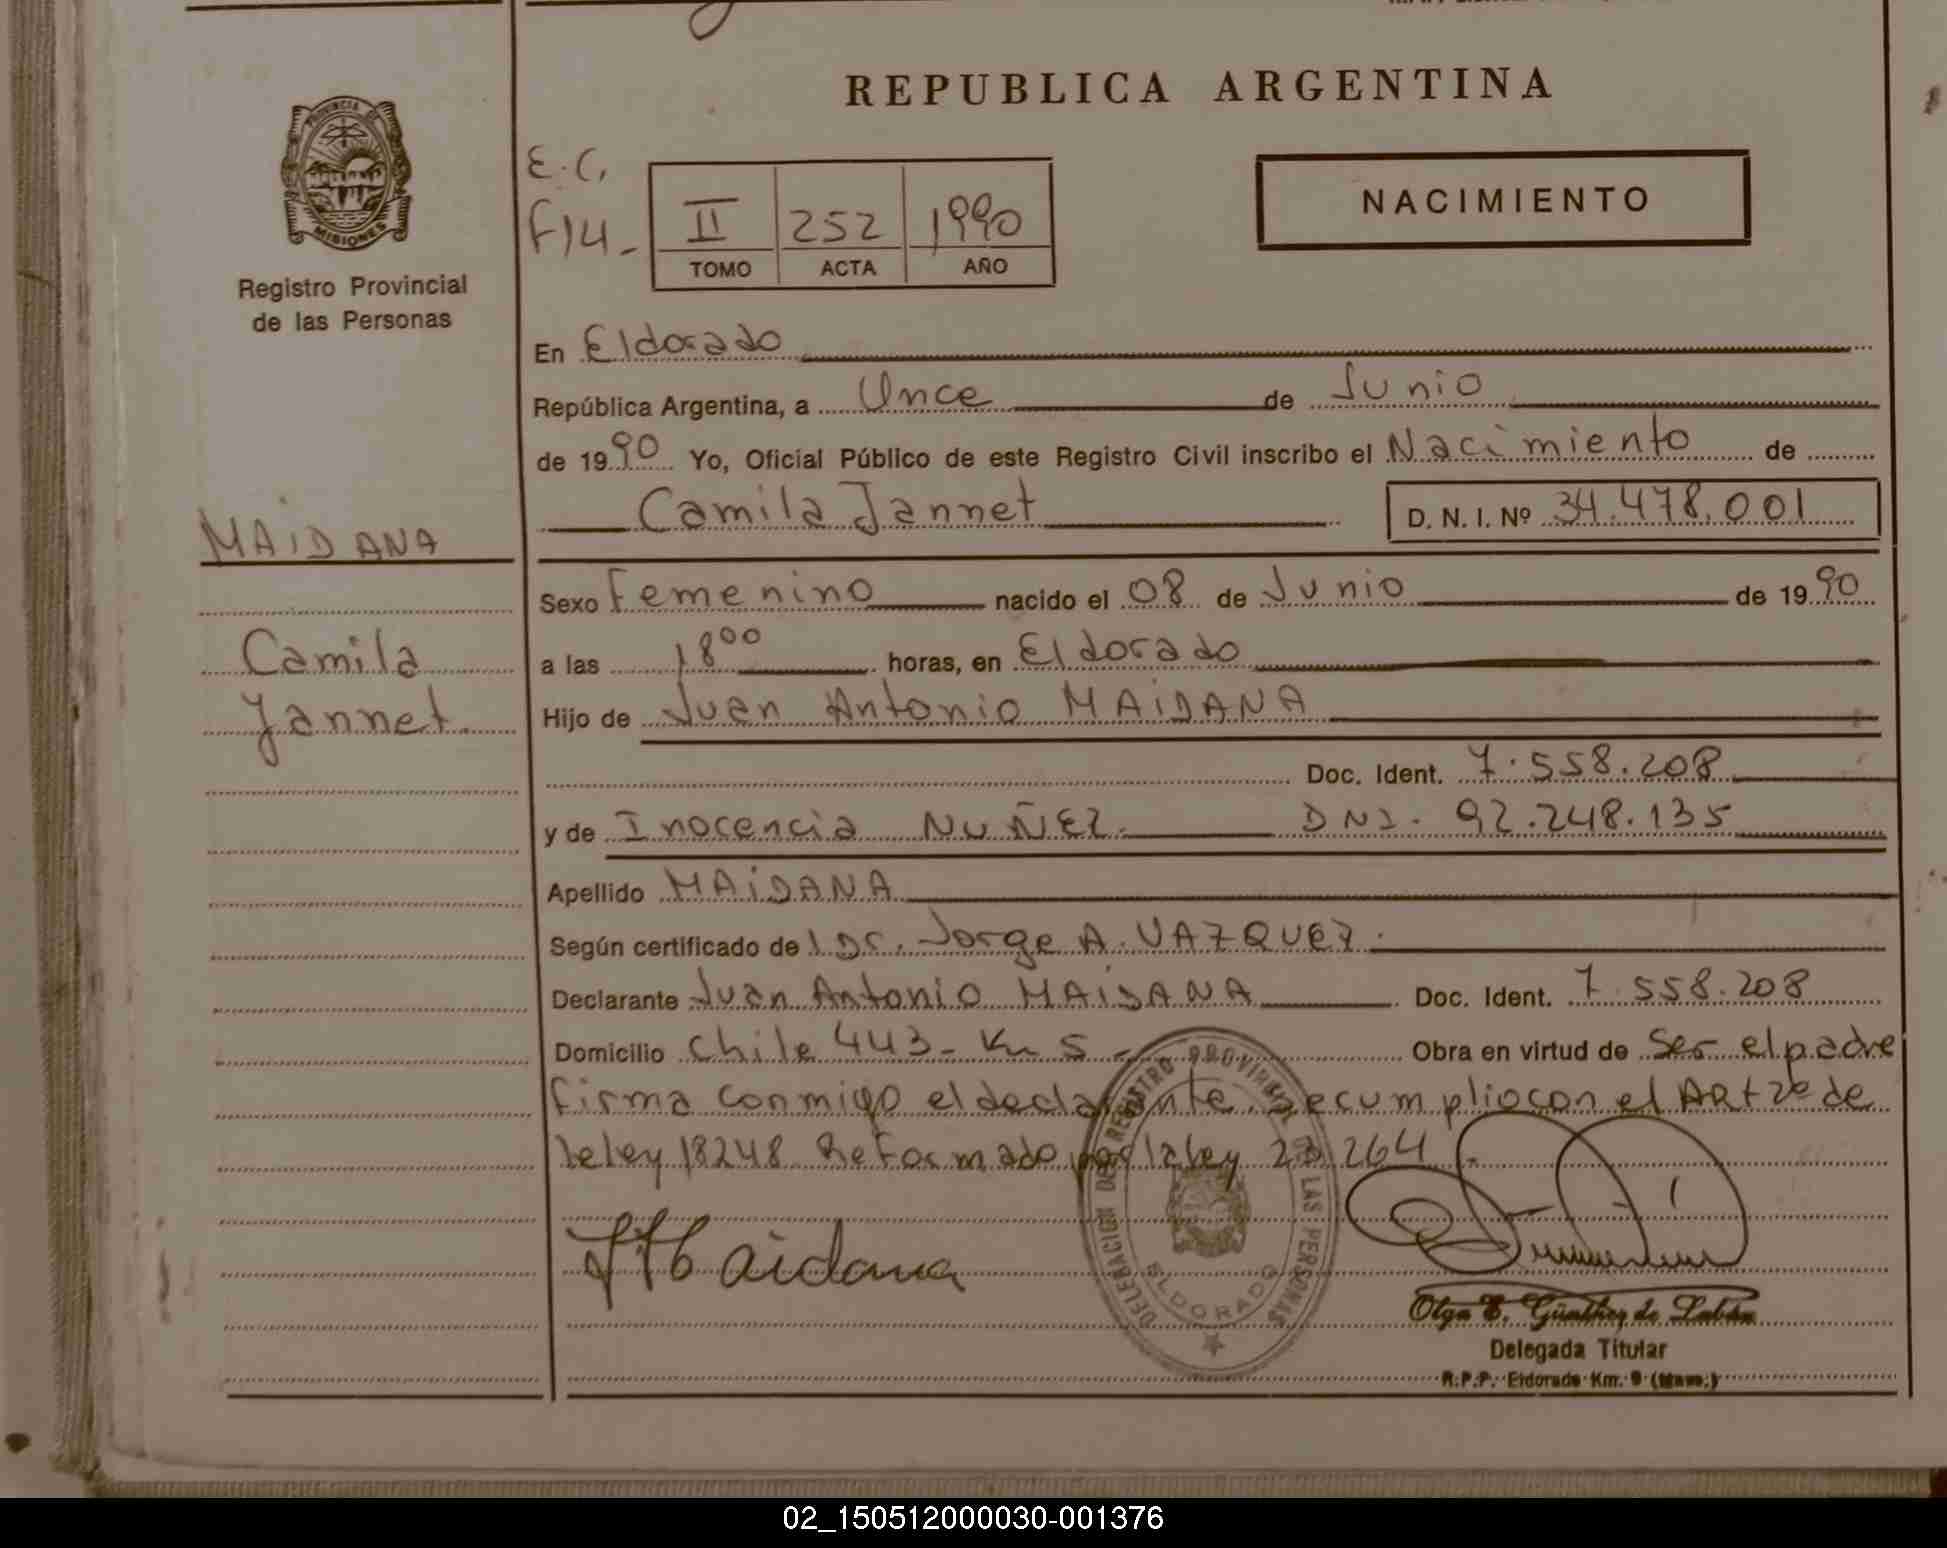 REPUBLICA ARGENTINA
PROVINCIA DE
MISIONES
Registro Provincial
de las Personas
E.C.
F14-
II 252 1990
TOMO ACTA AÑO
NACIMIENTO
En Eldorado
República Argentina, a Once de Junio
de 1990 Yo, Oficial Público de este Registro Civil inscribo el Nacimiento de
Camila Jannet D. N. I. Nº 34.478.001
MAiDANA
Camila
Jannet.
Sexo Femenino nacido el 08 de Junio de 1990
a las 18 00 horas, en Eldorado
Hijo de Juan Antonio MAiDANA
Doc. Ident. 7.558.208
y de Inocencia NUÑEZ. DNI. 92.248.135
Apellido MAiDANA
Según certificado de l Dr. Jorge A. VAZQUEZ.
Declarante Juan Antonio MAiDANA Doc. Ident. 7.558.208
Domicilio Chile 443- Km 5 - Obra en virtud de Ser el padre
firma conmigo el declarante. se cumplio con el ARt 2º de
la ley 18248 Reformado por la ley 23264.
Maidana
DELEGACION DE REGISTRO PROVINCIAL DE LAS PERSONAS
ELDORADO
Olga E. Günther de
Delegada Titular
R.P.P. Eldorado Km. 9 (Mnes.)
02_150512000030-001376